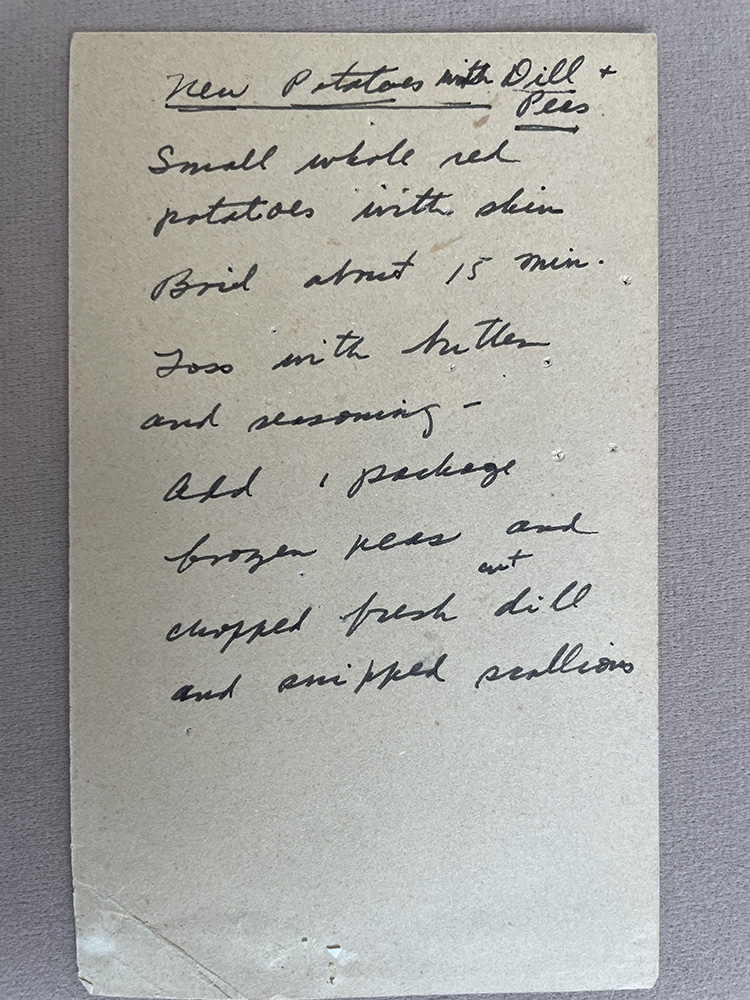 New Potatoes with Dill +
Peas
Small whole red
potatoes with skin
Broil about 15 min.
Toss with butter
and seasoning -
Add 1 package
frozen peas and
cut
chopped fresh dill
and snipped scallions